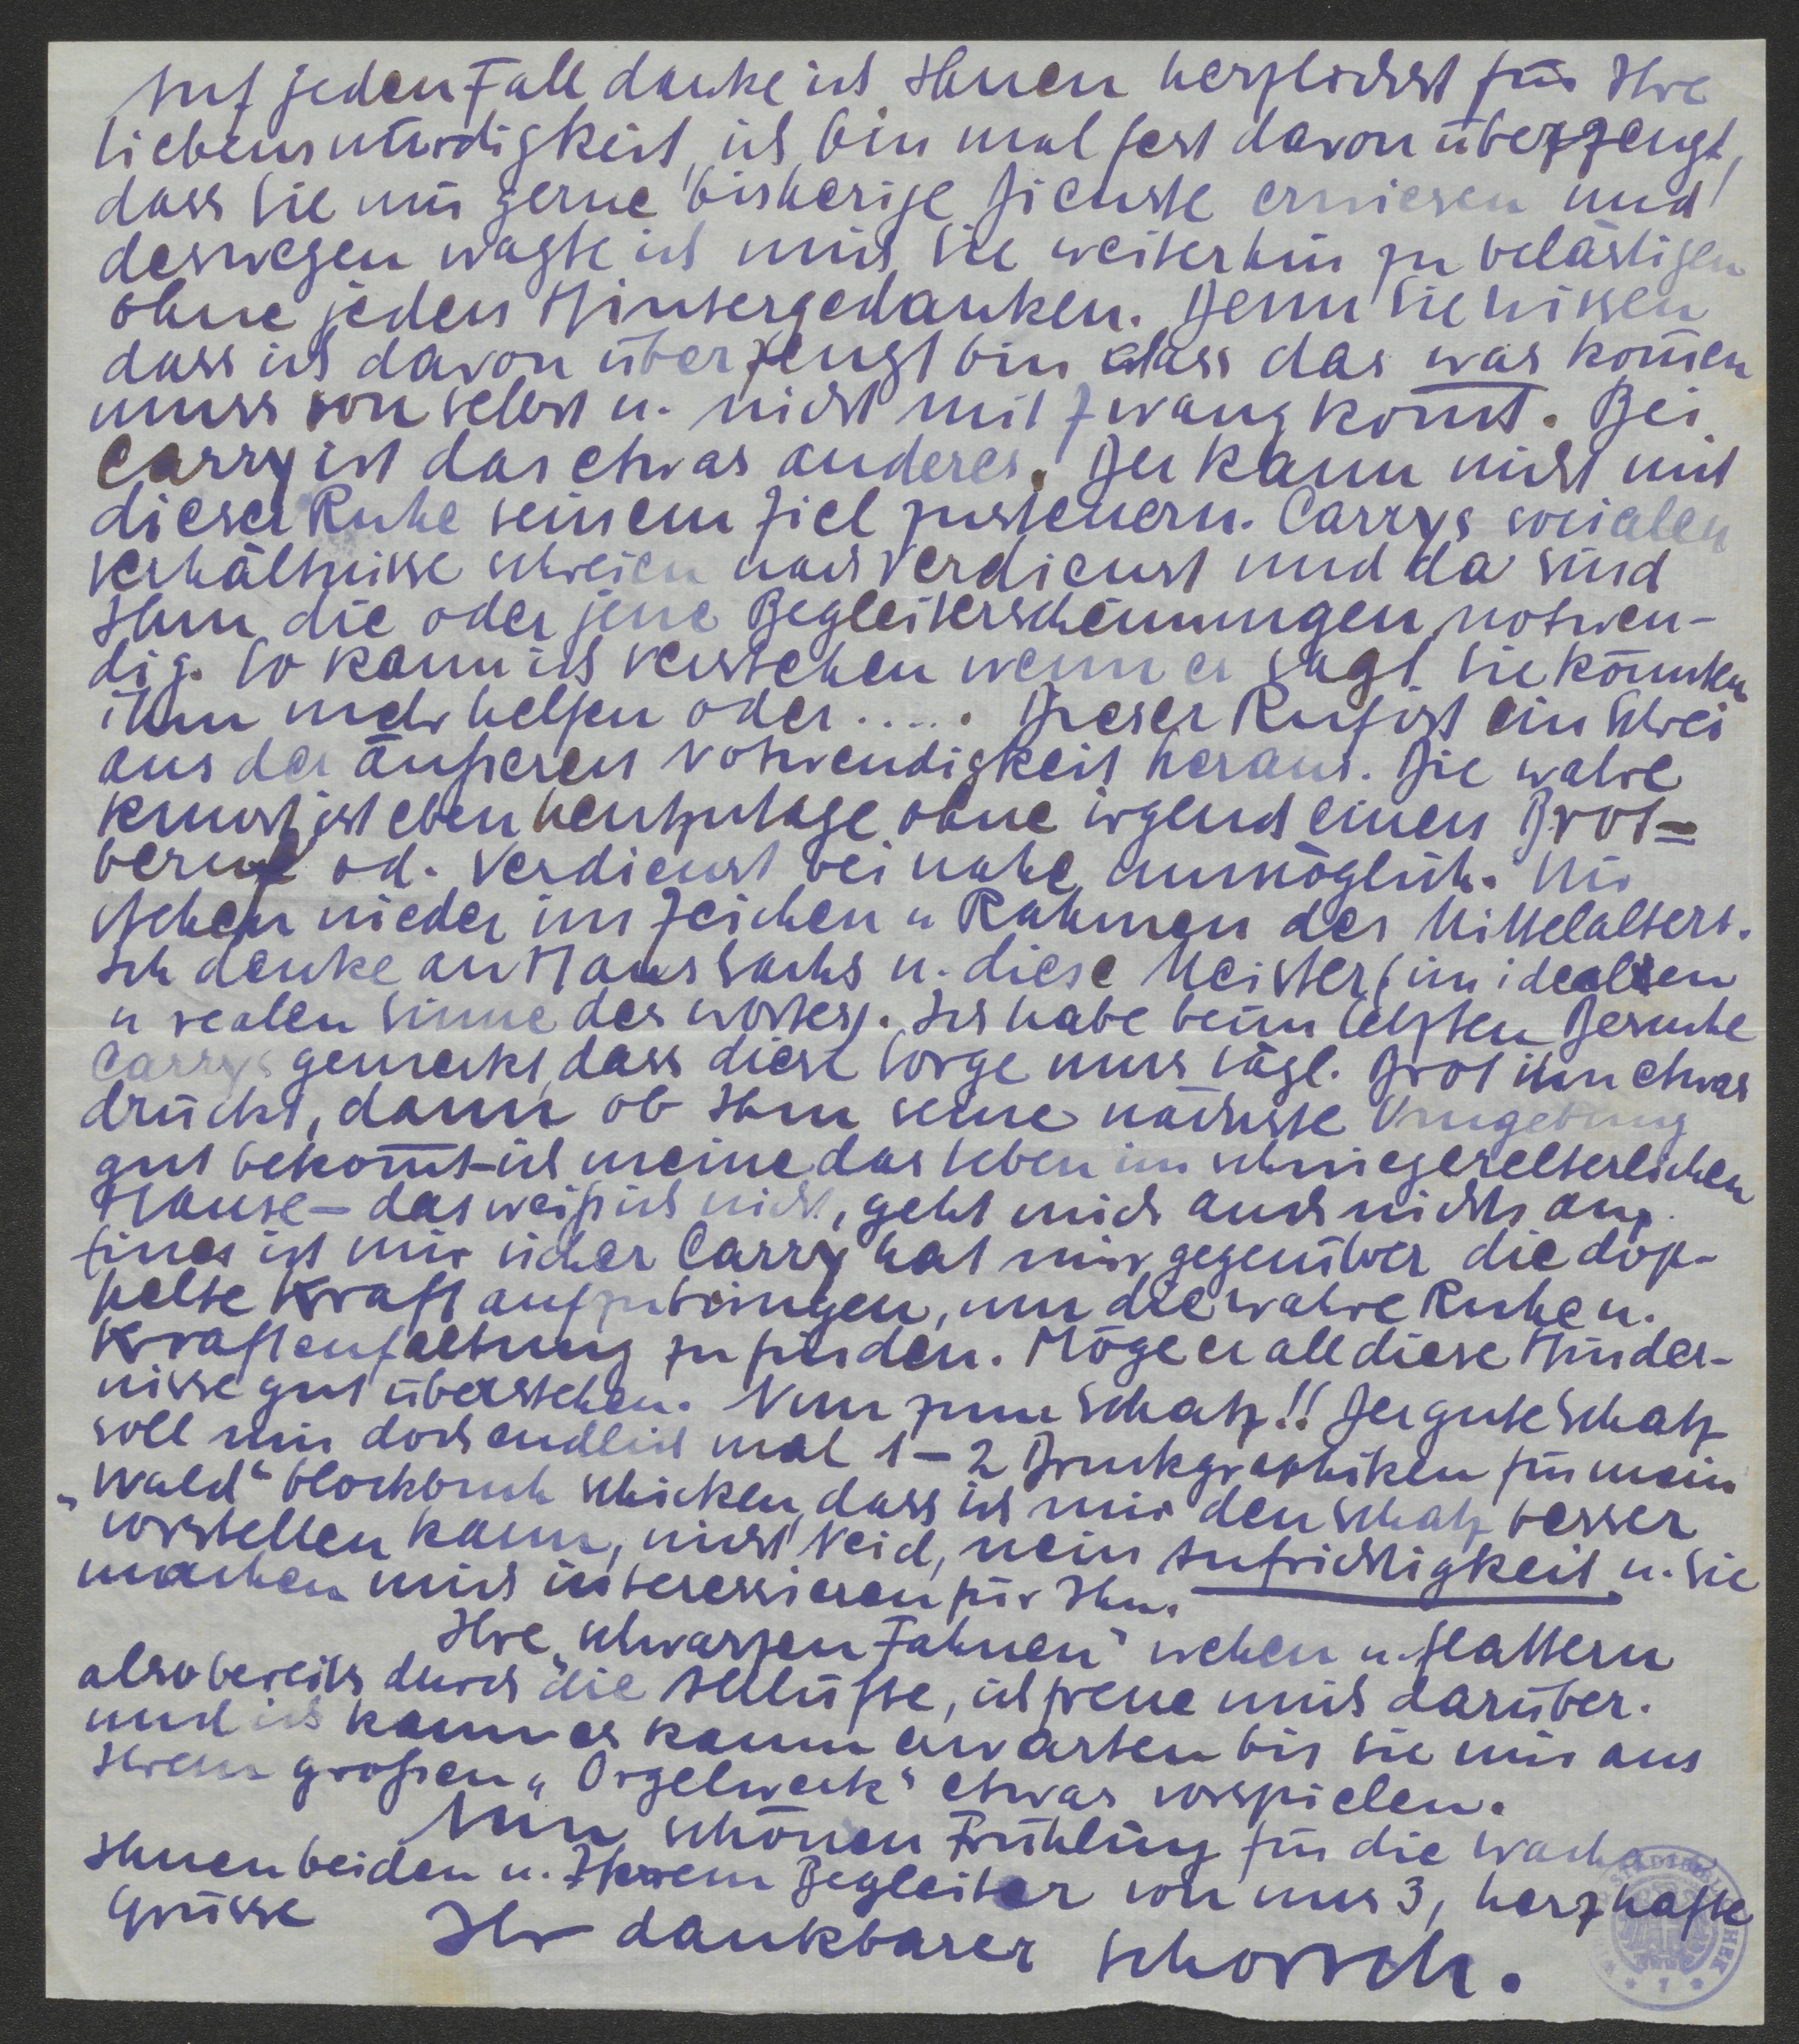 Auf jeden Fall danke ich Ihnen herzlichst für Ihre
Liebenswürdigkeit, ich bin mal fest davon überzeugt,
dass Sie mir gerne bisherige Dienste erwiesen und
deswegen wagte ich mich Sie weiterhin zu belästigen
ohne jeden Hintergedanken. Denn Sie wissen
dass ich davon überzeugt bin dass das was kom̄en
muss von selbst u. nicht mit Zwang kom̄t. Bei
Carry ist das etwas anderes. Der kann nicht mit
dieser Ruhe seinem Ziel zusteuern. Carrys socialen
Verhältnisse schreien nach Verdienst und da sind
Ihm die oder jene Begleiterscheinungen notwen-
dig. So kann ich verstehen wenn er sagt Sie könnten
ihm mehr helfen oder ..... Dieser Ruf ist ein Schrei
aus der äußeren Notwendigkeit heraus. Die wahre
Kunst ist eben heutzutage ohne irgend einen Brot=
beruf od. Verdienst bei nahe unmöglich. Wir
stehen wieder im Zeichen u Rahmen des Mittelalters.
Ich denke an Hans Sachs u. diese Meister (im idealen
u realen Sinne des Wortes). Ich habe beim letzten Besuche
Carrys gemerkt, dass diese Sorge ums tägl. Brot ihn etwas
drückt, dann ob Ihm seine nächste Umgebung
gut bekom̄t – ich meine das Leben im schwiegerelterlichen
Hause – das weiß ich nicht, geht mich auch nichts an.
Eines ist mir sicher Carry hat mir gegenüber die dop-
pelte Kraft aufzubringen, um die wahre Ruhe u.
Kraftenfaltung zu finden. Möge er all diese Hinder-
nisse gut überstehen. Nun zum Schatz!! Der gute Schatz
soll mir doch endlich mal 1 – 2 Druckgraphiken für mein
„Wald“ blockbuch schicken, dass ich mir den Schatz besser
vorstellen kann, nicht Neid, nein Aufrichtigkeit u. Sie
machen mich interessieren für Ihn.
Ihre „schwarzen Fahnen“ wehen u. flattern
also bereits durch die Lüfte, ich freue mich darüber.
und ich kann es kaum erwarten bis Sie mir aus
Ihrem großen „Orgelwerk“ etwas vorspielen.
Nun schönen Frühling für die
Ihnen beiden u. Ihrem Begleiter von uns 3, herzhafte
Grüsse
Ihr dankbarer Schorsch.